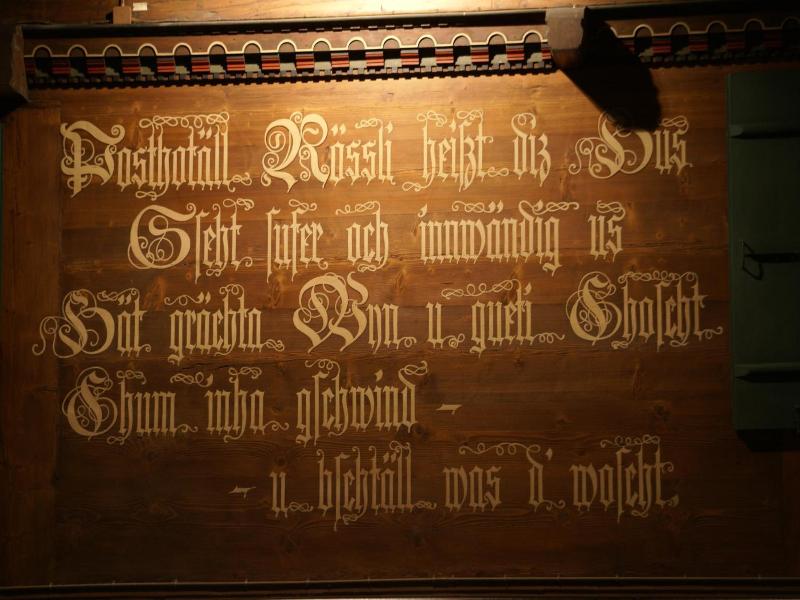 Posthotäll Rössli heißt diz Hus
Gseht sufer och innwändig us
Hät grächta Wyn u gueti Choscht
Chum inha gschwind –
– u bschtäll was d' woscht